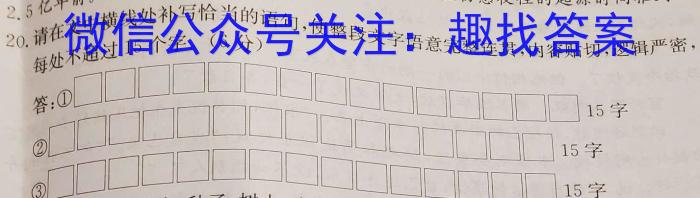 2.5亿年前
微信公众号关注：趣找答案
20.请在 横线处补写恰当的语句，使整段文字语意完整连贯，内容贴切，逻辑严密，
每处不超过15个字。（6分）
答：① 15字
② 15字
③ 15字